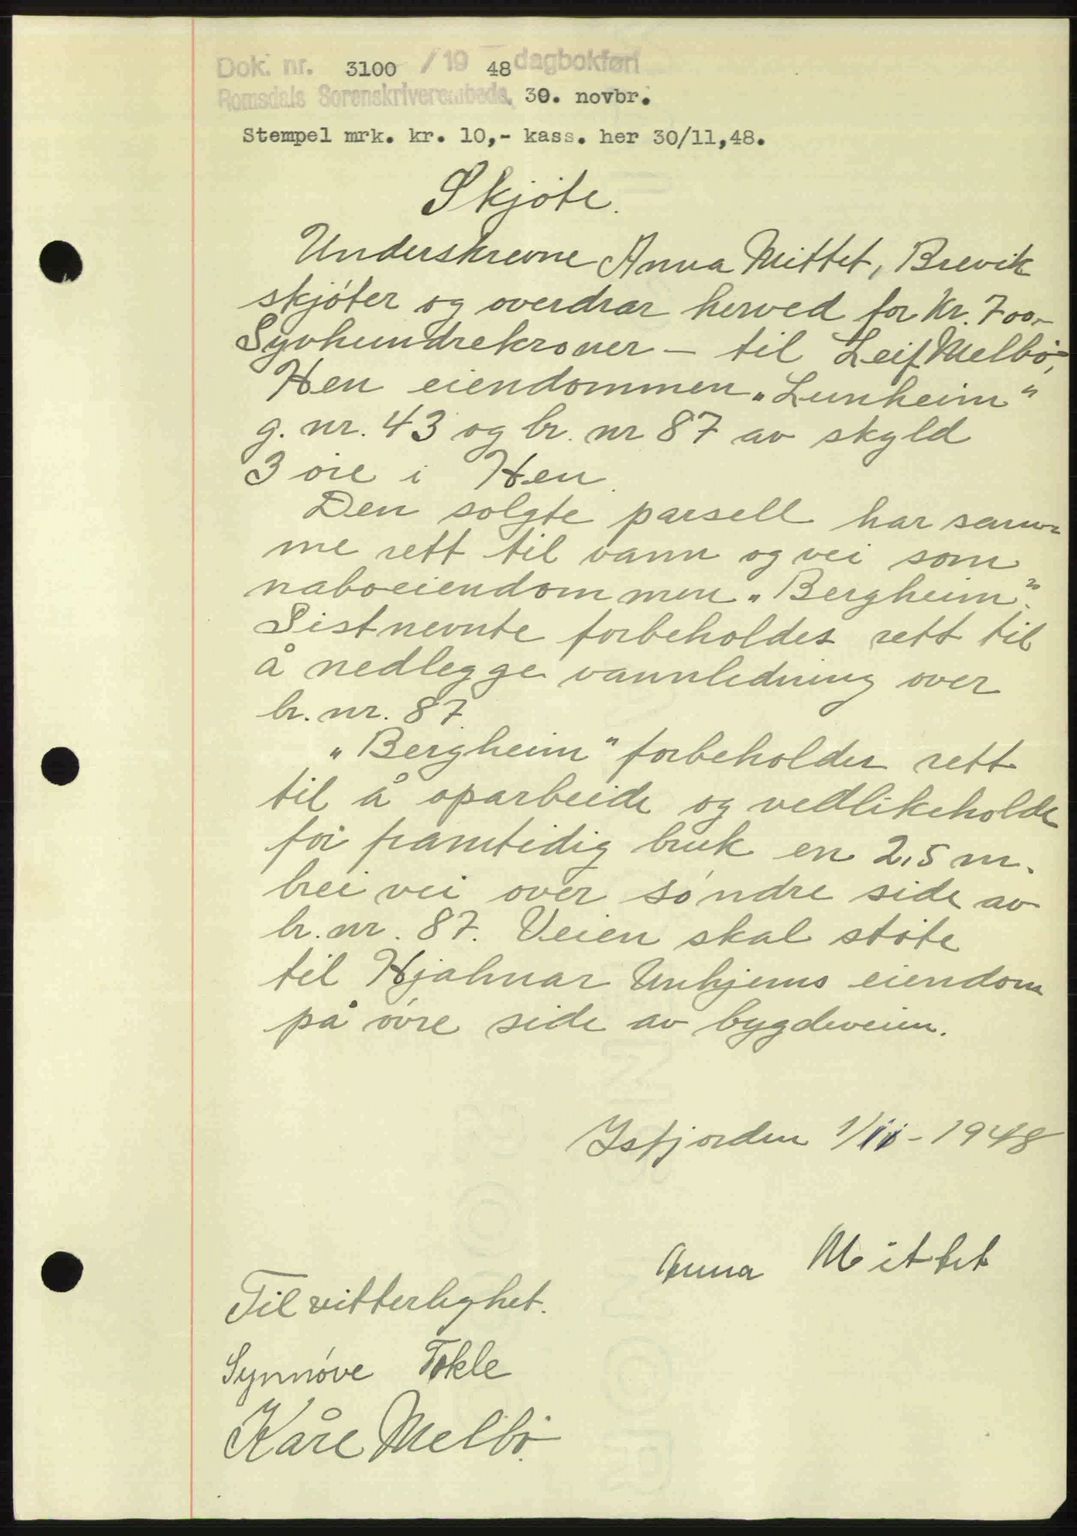 Dok. nr. 3100 /19 48 dagbokført
Romsdals Sorenskriverembede, 30. novbr.
Stempel mrk. kr. 10,- kass. her 30/11,48.
Skjøte.
Underskrevne Anna Mittet, Brevik
skjøter og overdrar herved for kr. 700,-
Syvhundrekroner - til Leif Melbø,
Hen eiendommen "Lunheim"
g. nr. 43 og br. nr 87 av skyld
3 øre i Hen.
Den solgte parsell har sam-
me rett til vann og vei som
naboeiendommen "Bergheim".
Sistnevnte forbeholdes rett til
å nedlegge vannledning over
br. nr. 87.
"Bergheim" forbeholder rett
til å oparbeide og vedlikeholde
for framtidig bruk en 2,5 m.
brei vei over søndre side av
br. nr. 87. Veien skal støte
til Hjalmar Unhjems eiendom
på øvre side av bygdeveien.
Isfjorden 1/11 - 1948
Anna Mittet
Til vitterlighet.
Synnøve Tokle
Kåre Melbø.